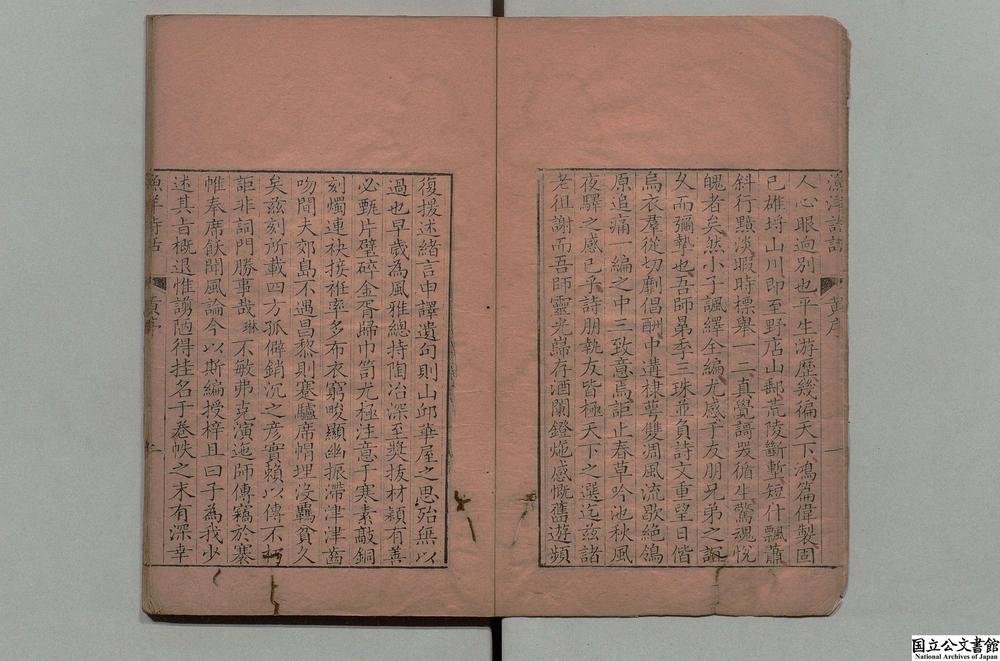 漁洋詩話
黃序
一
人心眼迥別也平生游歷幾徧天下鴻篇偉製固
已雄埒山川即至野店山郵荒陵斷塹短什飄蕭
斜行黯淡暇時標舉一二真覺謌哭循生驚魂恱
魄者矣然小子諷繹全編尤感于友朋兄弟之誼
久而彌摯也吾師曑季三珠並負詩文重望日偕
烏衣羣從切劘倡酬中遘棣萼雙凋風流歇絕鴒
原追痛一編之中三致意焉詎止春草吟池秋風
夜驛之感已乎詩朋執友皆極天下之選迄兹諸
老徂謝而吾師靈光巋存酒闌鐙灺感慨舊遊頻
復援述緒言申譯遺句則山邱華屋之思殆無以
過也早歲為風雅總持陶冶深至奬拔材穎有善
必甄片璧碎金胥歸巾笥尤極注意于寒素敲銅
刻燭連袂接裾率多布衣窮畯顯幽振滯津津齒
吻間夫郊島不遇昌黎則蹇驢席帽埋沒羈貧久
矣兹刻所載四方孤僻銷沉之彥實賴以傳不朽
詎非詞門勝事哉琳不敏弗克演迤師傳竊於搴
帷奉席飫聞風論今以斯編授梓且曰子為我少
述其旨概退惟謭陋得挂名于卷帙之末有深幸
漁洋詩話
黃序
二
国立公文書館
National Archives of Japan